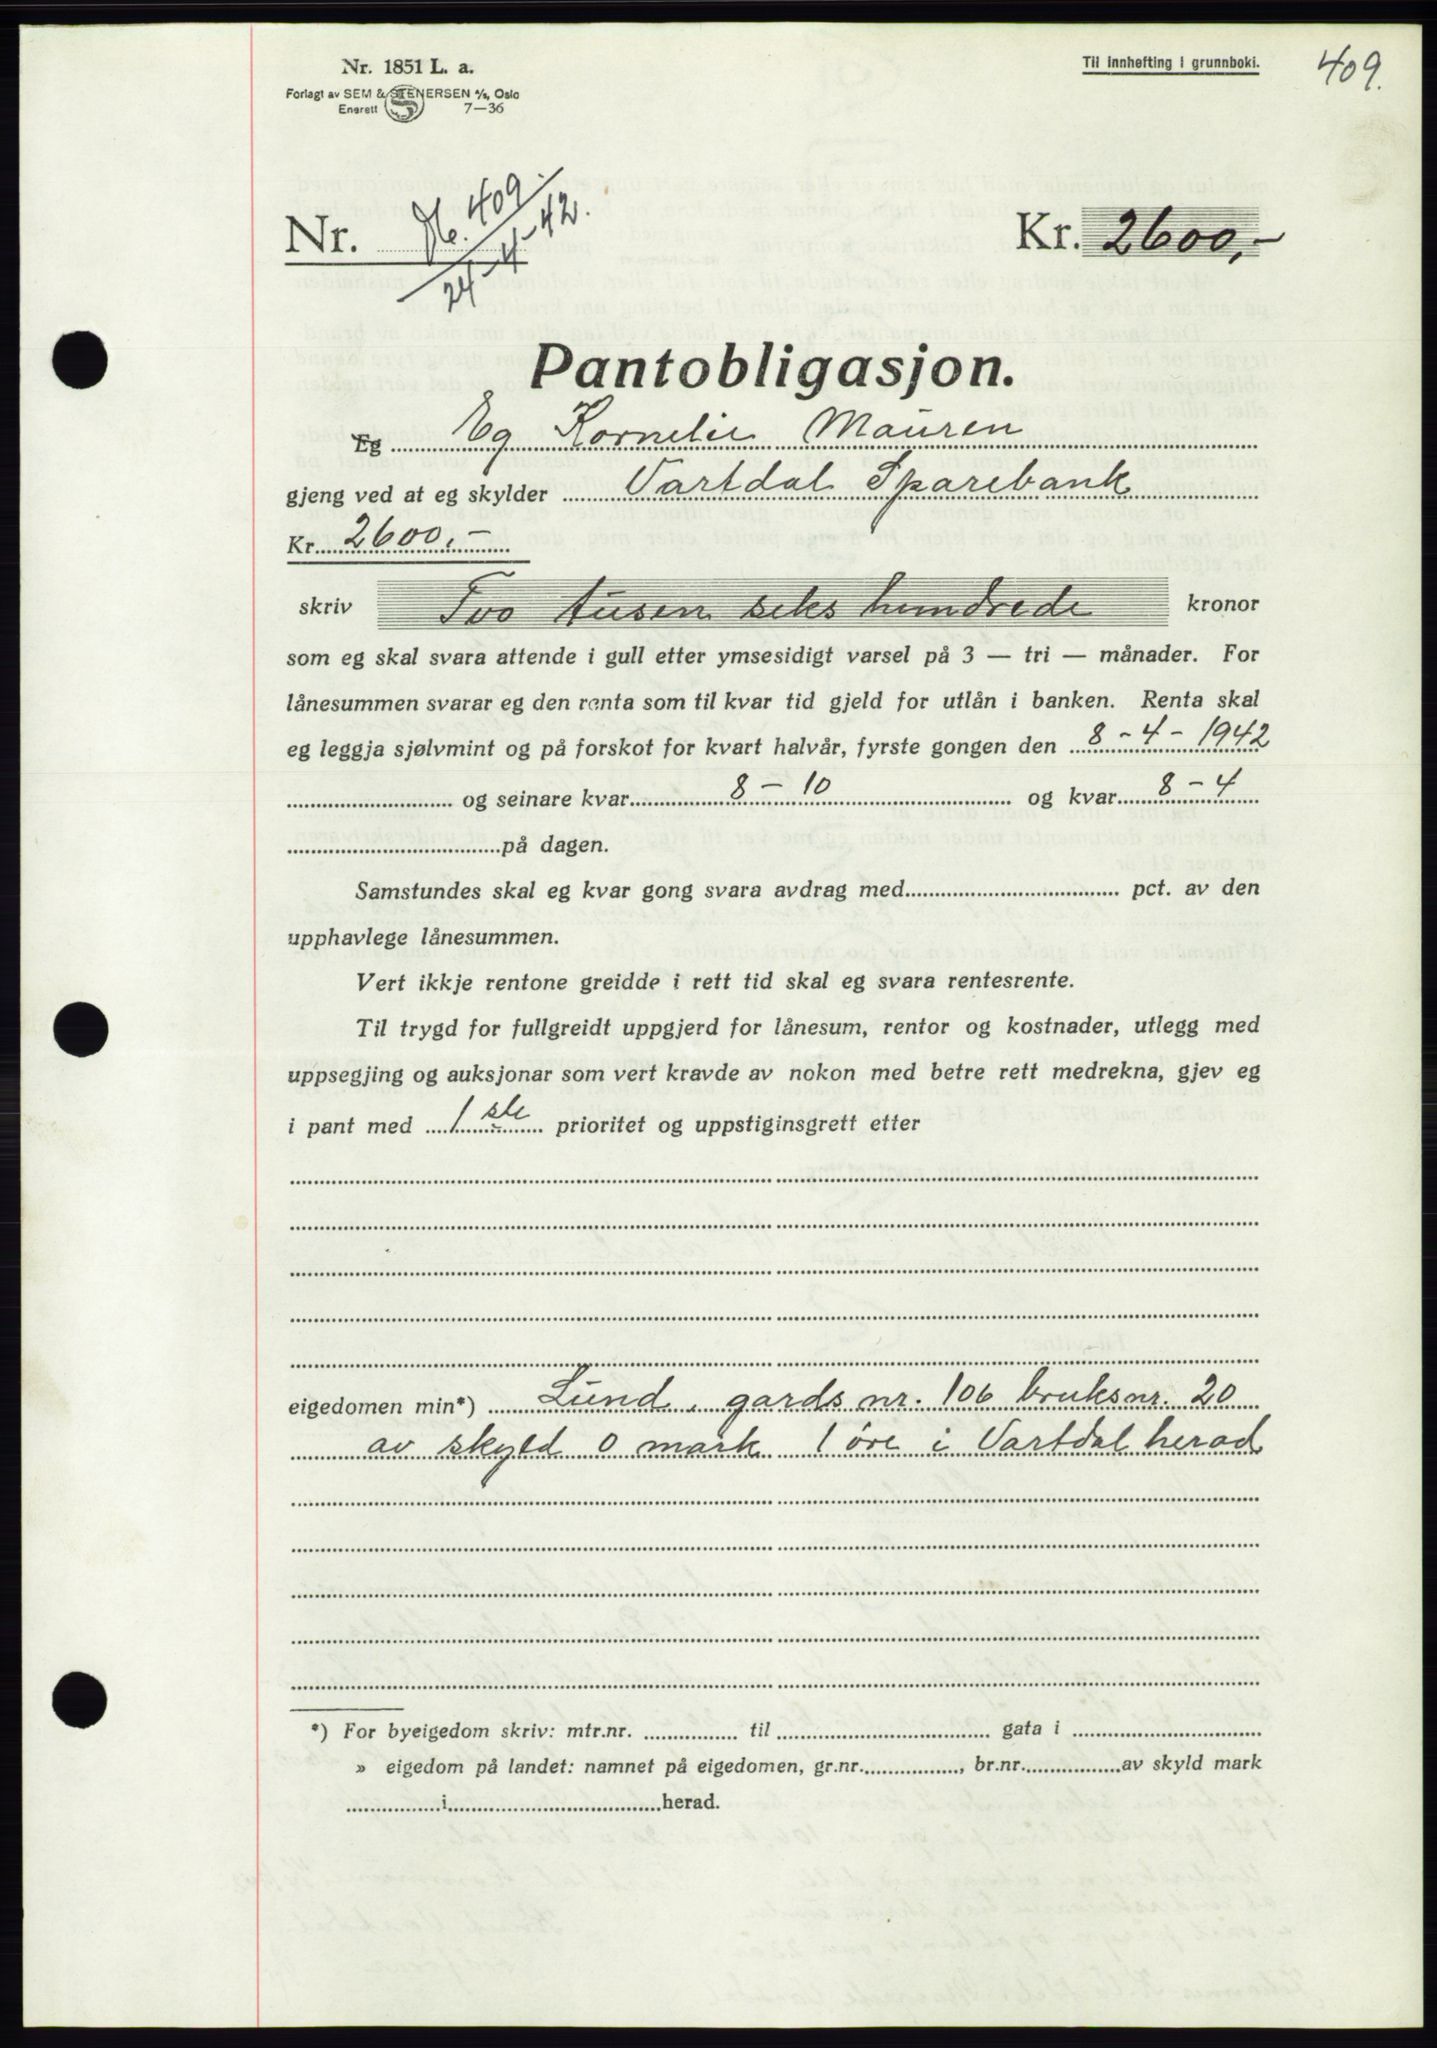 Nr. 1851 L. a.
Forlagt av SEM & STENERSEN A/S, Oslo
Enerett 7—36
Til innhefting i grunnboki.
409.
Nr. 409.
24-4-42.
Kr. 2600,-
Pantobligasjon.
Eg Eg Kornelie Mauren
gjeng ved at eg skylder Vartdal Sparebank
Kr. 2600,-
skriv Tvo tusen seks hundrede kronor
som eg skal svara attende i gull etter ymsesidigt varsel på 3 — tri — månader. For
lånesummen svarar eg den renta som til kvar tid gjeld for utlån i banken. Renta skal
eg leggja sjølvmint og på forskot for kvart halvår, fyrste gongen den 8-4-1942
og seinare kvar 8-10 og kvar 8-4
på dagen.
Samstundes skal eg kvar gong svara avdrag med pct. av den
upphavlege lånesummen.
Vert ikkje rentone greidde i rett tid skal eg svara rentesrente.
Til trygd for fullgreidt uppgjerd for lånesum, rentor og kostnader, utlegg med
uppsegjing og auksjonar som vert kravde av nokon med betre rett medrekna, gjev eg
i pant med 1ste prioritet og uppstiginsgrett etter
eigedomen min*) Lund, gards nr. 106 bruksnr. 20
av skyld 0 mark 1 øre i Vartdal herad
*) For byeigedom skriv: mtr.nr. til gata i
» eigedom på landet: namnet på eigedomen, gr.nr. , br.nr. av skyld mark
i herad.